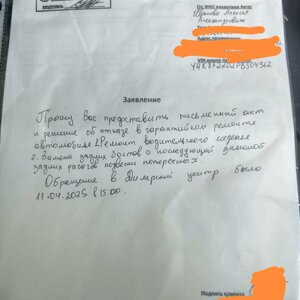 подпись
От: ФИО владельца Авто:
Иванова Алексея
Александровича
Адрес проживания:
VIN номер
Заявление
Прошу Вас предоставить письменный акт
и решение об отказе в гарантийном ремонте
автомобиля 1. Ремонт водительского сидения
2. Замена задних болтов с последующей заменой
задних рычагов подвески поперечных.
Обращение в Дилерский центр было
11.04.2025 в 15:00.
Подпись клиента